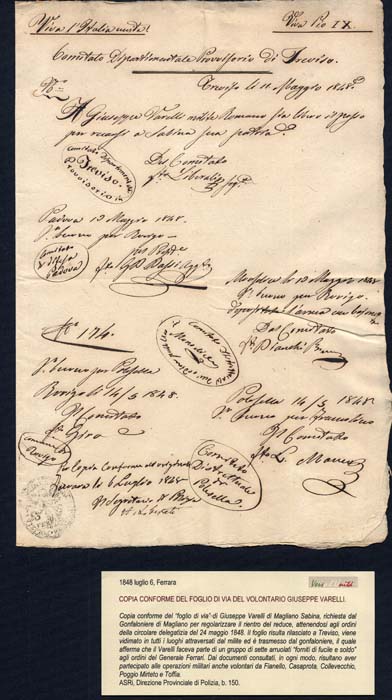 Viva l'Italia unita!
Viva Pio IX.
Comitato Dipartimentale Provvisorio di Treviso.
Treviso li 11 Maggio 1848.
Giuseppe Varelli milite Romano sia libero il passo
per recarsi a Sabina sua patria
Comitato Dipartimentale Provvisorio in Treviso.
Del Comitato
Padova 12 Maggio 1848.
buono per Rovigo
Comitato Difesa Padova
Monselice li 13 Maggio 1848
buono per Rovigo.
Del Comitato
N° 174.
Comitato Distrettuale Monselice
buono per Polesella
Rovigo li 14/5 1848.
Il Comitato
Comitato Rovigo
Polesella 14/5 1848
buono per Francolino
Il Comitato
Comitato Distrettuale di Polesella
Per Copia Conforme all'originale
Ferrara li 6 Luglio 1848
Il Segretario di
1848 luglio 6, Ferrara
COPIA CONFORME DEL FOGLIO DI VIA DEL VOLONTARIO GIUSEPPE VARELLI.
Copia conforme del "foglio di via" di Giuseppe Varelli di Magliano Sabina, richieste dal
Gonfaloniere di Magliano per regolarizzare il rientro del reduce, attenendosi agli ordini
della circolare delegatizia del 24 maggio 1848. Il foglio risulta rilasciato a Treviso, viene
vidimato in tutti i luoghi attraversati dal milite ed è trasmesso dal gonfaloniere, il quale
afferme che il Varelli faceva parte di un gruppo di sette arruolati "forniti di fucile e soldo"
agli ordini del Generale Ferrari. Dai documenti consultati, in ogni modo, risultano aver
partecipato alle operazioni militari anche volontari da Fianello, Casaprota, Collevecchio,
Poggio Mirteto e Toffia.
ASRi, Direzione Provinciale di Polizia, b. 150.